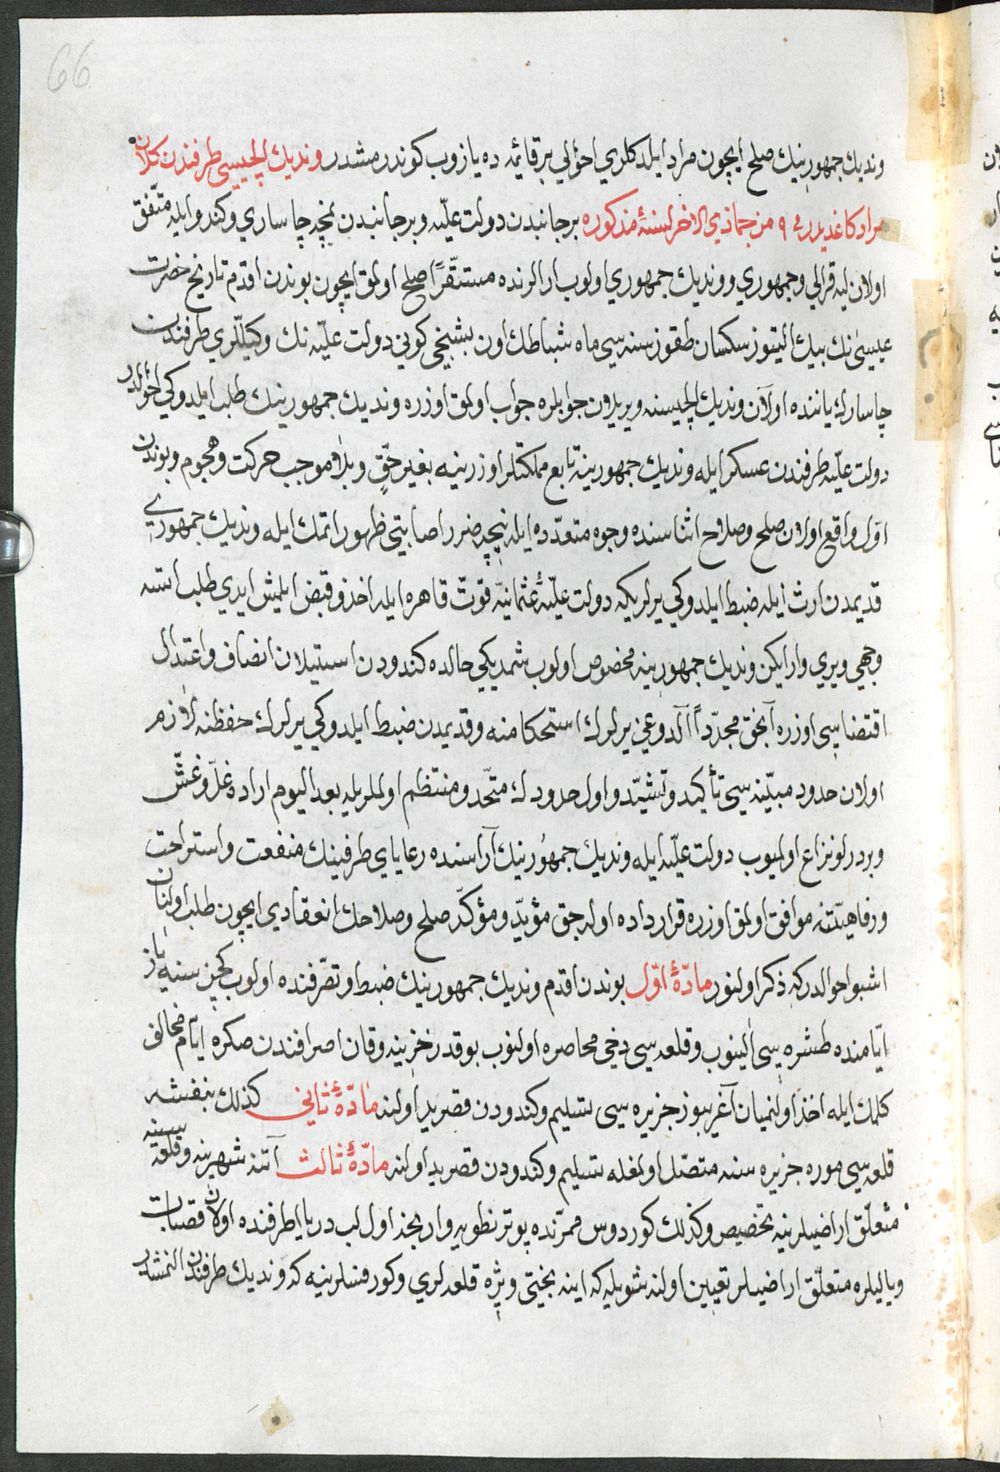 66
ونديك جمهورينك صلح ايچون مراد ايلدكلري احوالي برقائمه ده يازوب كوندرمشدر ونديك ايلچيسى طرفندن كلان
مراد كاغديدر فى ٩ من جماذي الاخر لسنۀ مذكوره برجانبدن دولت عليّه وبرجانبدن نمچه چاساري وكندو ايله متّفق
اولان ليه قرالي وجمهوري وونديك جمهوري اولوب ارالرنده مستقرًا صلح اولمق ايچون بوندن اقدم تاريخ حضرت
عيسىٰ نك بيك التيتوز سكسان طقوز سنه سي ماه شباطك اون بشنجى كوني دولت عليّه نك وكيللري طرفندن
چاسارك ياننده اولان ونديك ايلچيسنه ويريلان جوابلره جواب اولمق اوزره ونديك جمهورينك طلب ايلدوكي احوالدر
دولت عليّه طرفندن عسكر ايله ونديك جمهورينه تابع مملكتلر اوزرينه بغير حقٍّ وبلا موجب حركت وهجوم وبوندن
اوّل واقع اولان صلح وصلاح اثناسنده وجوه متعدّده ايله نيچه ضرر اصابتي ظهور اتمك ايله ونديك جمهوري
قديمدن ارث ايله ضبط ايلدوكي يرلريكه دولت عليّۀ عثمانيّه قوّت قاهره ايله اخذ وقبض ايلمش ايدي طلب اتسه
وجهي ويري وار ايكن ونديك جمهورينه مخصوص اولوب شمديكي حالده كندودن استيلان انصاف واعتدال
اقتضاسى اوزره آنجق مجدّداً آلدوغي يرلرك استحكامنه وقديمدن ضبط ايلدوكي يرلرك حفظنه لازم
اولان حدود مبيّنه سي تأكيد وتشيّد واول حدود له متّحد ومنتظم اولملريله بعد اليوم اراده غلّ وغشّ
وبر درلو نزاع اولميوب دولت عليّه ايله ونديك جمهورنيك آراسنده رعاياي طرفينك منفعت واستراحت
ورفاهيّتنه موافق اولمق اوزره قرارداده اولەجق مؤيّد ومؤكّد صلح وصلاحك انعقادي ايچون طلب اولنان
اشبو احوالدركه ذكر اولنور مادّۀ اوّل بوندن اقدم ونديك جمهورينك ضبط وتصرّفنده اولوب كچن سنه ياز
ايّامنده طشره سي آلينوب وقلعه سي دخي محاصره اولنوب بوقدر خزينه وقان اصرافندن صكره ايّام مخالف
كلمك ايله اخذ اولنميان آغريبوز جزيره سي تسليم وكندودن قصريد اولنه مادّۀ ثاني كذلك بنفشه
قلعه سي موره جزيره سنه متصّل اولمغله تسليم وكندودن قصريد اولنه مادّۀ ثالث آتنه شهرينه وقلعه سنه
متعلّق اراضيلرينه تخصيص وكذلك كوردوس ممرّنده اولان قصبات
ويالىلره متعلّق اراضيلر تعيين اولنه شويله كه اينه بختي وپژه قلعه لري وكورفسلرينه كه ونديك طرفندن النمشدر